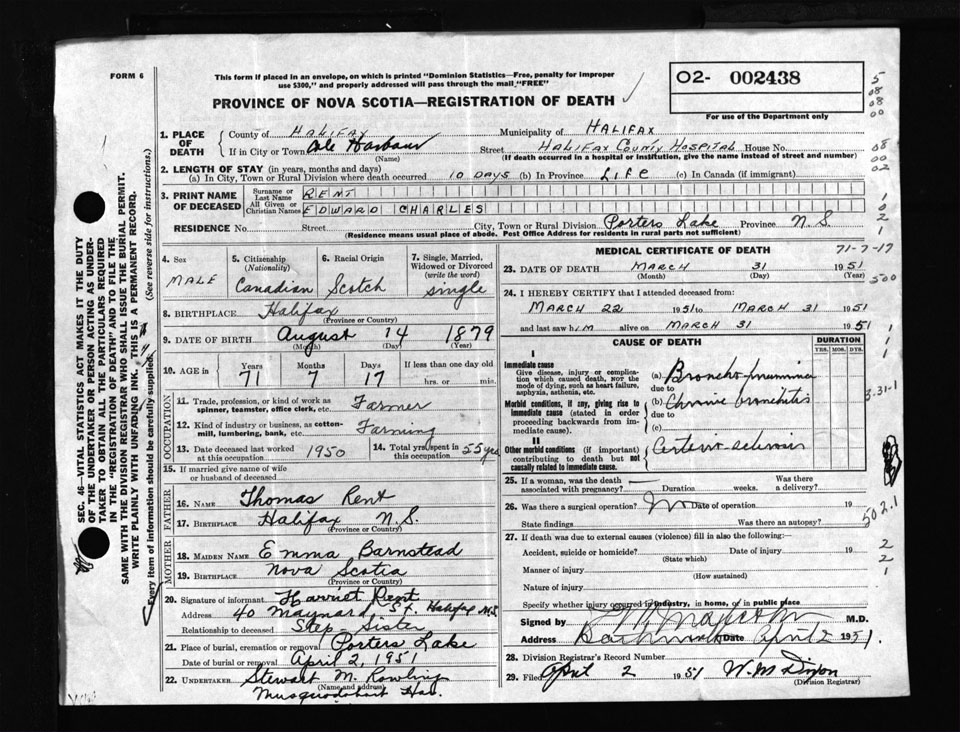 FORM 6
This form if placed in an envelope, on which is printed "Dominion Statistics—Free, penalty for improper
use $300," and properly addressed will pass through the mail "FREE"
02- 002438
For use of the Department only
PROVINCE OF NOVA SCOTIA—REGISTRATION OF DEATH
1. PLACE OF DEATH
County of HALIFAX Municipality of HALIFAX
If in City or Town Cole Harbour Street HALIFAX COUNTY HOSPITAL House No.
(Name) (If death occurred in a hospital or institution, give the name instead of street and number)
2. LENGTH OF STAY (in years, months and days)
(a) In City, Town or Rural Division where death occurred 10 DAYS (b) In Province LIFE (c) In Canada (if immigrant)
3. PRINT NAME OF DECEASED
Surname or Last Name RENT
All Given or Christian Names EDWARD CHARLES
RESIDENCE No. Street City, Town or Rural Division Porters Lake Province N.S.
(Residence means usual place of abode. Post Office Address for residents in rural parts not sufficient)
4. Sex MALE
5. Citizenship (Nationality) Canadian
6. Racial Origin Scotch
7. Single, Married, Widowed or Divorced (write the word) Single
8. BIRTHPLACE Halifax
(Province or Country)
9. DATE OF BIRTH August 14 1879
(Month) (Day) (Year)
10. AGE in Years 71 Months 7 Days 17 If less than one day old hrs. or min.
OCCUPATION
11. Trade, profession, or kind of work as spinner, teamster, office clerk, etc. Farmer
12. Kind of industry or business, as cotton-mill, lumbering, bank, etc. Farming
13. Date deceased last worked at this occupation 1950
14. Total yrs. spent in this occupation 55 yrs
15. If married give name of wife or husband of deceased
FATHER
16. NAME Thomas Rent
17. BIRTHPLACE Halifax N.S.
(Province or Country)
MOTHER
18. MAIDEN NAME Emma Barnstead
19. BIRTHPLACE Nova Scotia
(Province or Country)
20. Signature of informant Harriet Rent
Address 40 Maynard St. Halifax N.S.
Relationship to deceased Step Sister
21. Place of burial, cremation or removal Porters Lake
Date of burial or removal April 2, 1951
22. UNDERTAKER Stewart M. Rowling
(Name and address)
Musquodoboit Har.
MEDICAL CERTIFICATE OF DEATH
71-7-17
23. DATE OF DEATH MARCH 31 1951
(Month) (Day) (Year)
24. I HEREBY CERTIFY that I attended deceased from:
MARCH 22 1951 to MARCH 31 1951
and last saw him alive on MARCH 31 1951
CAUSE OF DEATH
DURATION
YRS. MOS. DYS.
I
Immediate cause
Give disease, injury or complication which caused death, NOT the mode of dying, such as heart failure, asphyxia, asthenia, etc.
(a) Broncho pneumonia
due to
Morbid conditions, if any, giving rise to immediate cause (stated in order proceeding backwards from immediate cause).
(b) Chronic bronchitis
due to
(c)
II
Other morbid conditions (if important) contributing to death but not causally related to immediate cause.
Arterio sclerosis
25. If a woman, was the death associated with pregnancy? Duration weeks. Was there a delivery?
26. Was there a surgical operation? No Date of operation 19
State findings Was there an autopsy?
27. If death was due to external causes (violence) fill in also the following:—
Accident, suicide or homicide? Date of injury 19
(State which)
Manner of injury
(How sustained)
Nature of injury
Specify whether injury occurred in industry, in home, or in public place
Signed by M.D.
Address Dartmouth Date April 2 1951.
28. Division Registrar's Record Number
29. Filed April 2 1951 W. M. Dixon
(Division Registrar)
SEC. 46—VITAL STATISTICS ACT MAKES IT THE DUTY
OF THE UNDERTAKER OR PERSON ACTING AS UNDER-
TAKER TO OBTAIN ALL THE PARTICULARS REQUIRED
IN THE "REGISTRATION OF DEATH" AND TO FILE THE
SAME WITH THE DIVISION REGISTRAR WHO SHALL ISSUE THE BURIAL PERMIT.
WRITE PLAINLY WITH UNFADING INK. THIS IS A PERMANENT RECORD.
Every item of information should be carefully supplied. (See reverse side for instructions.)
5
08
08
00
08
00
02
1
0
2
1
500
1
1
1
3.31-1
502.1
2
2
1